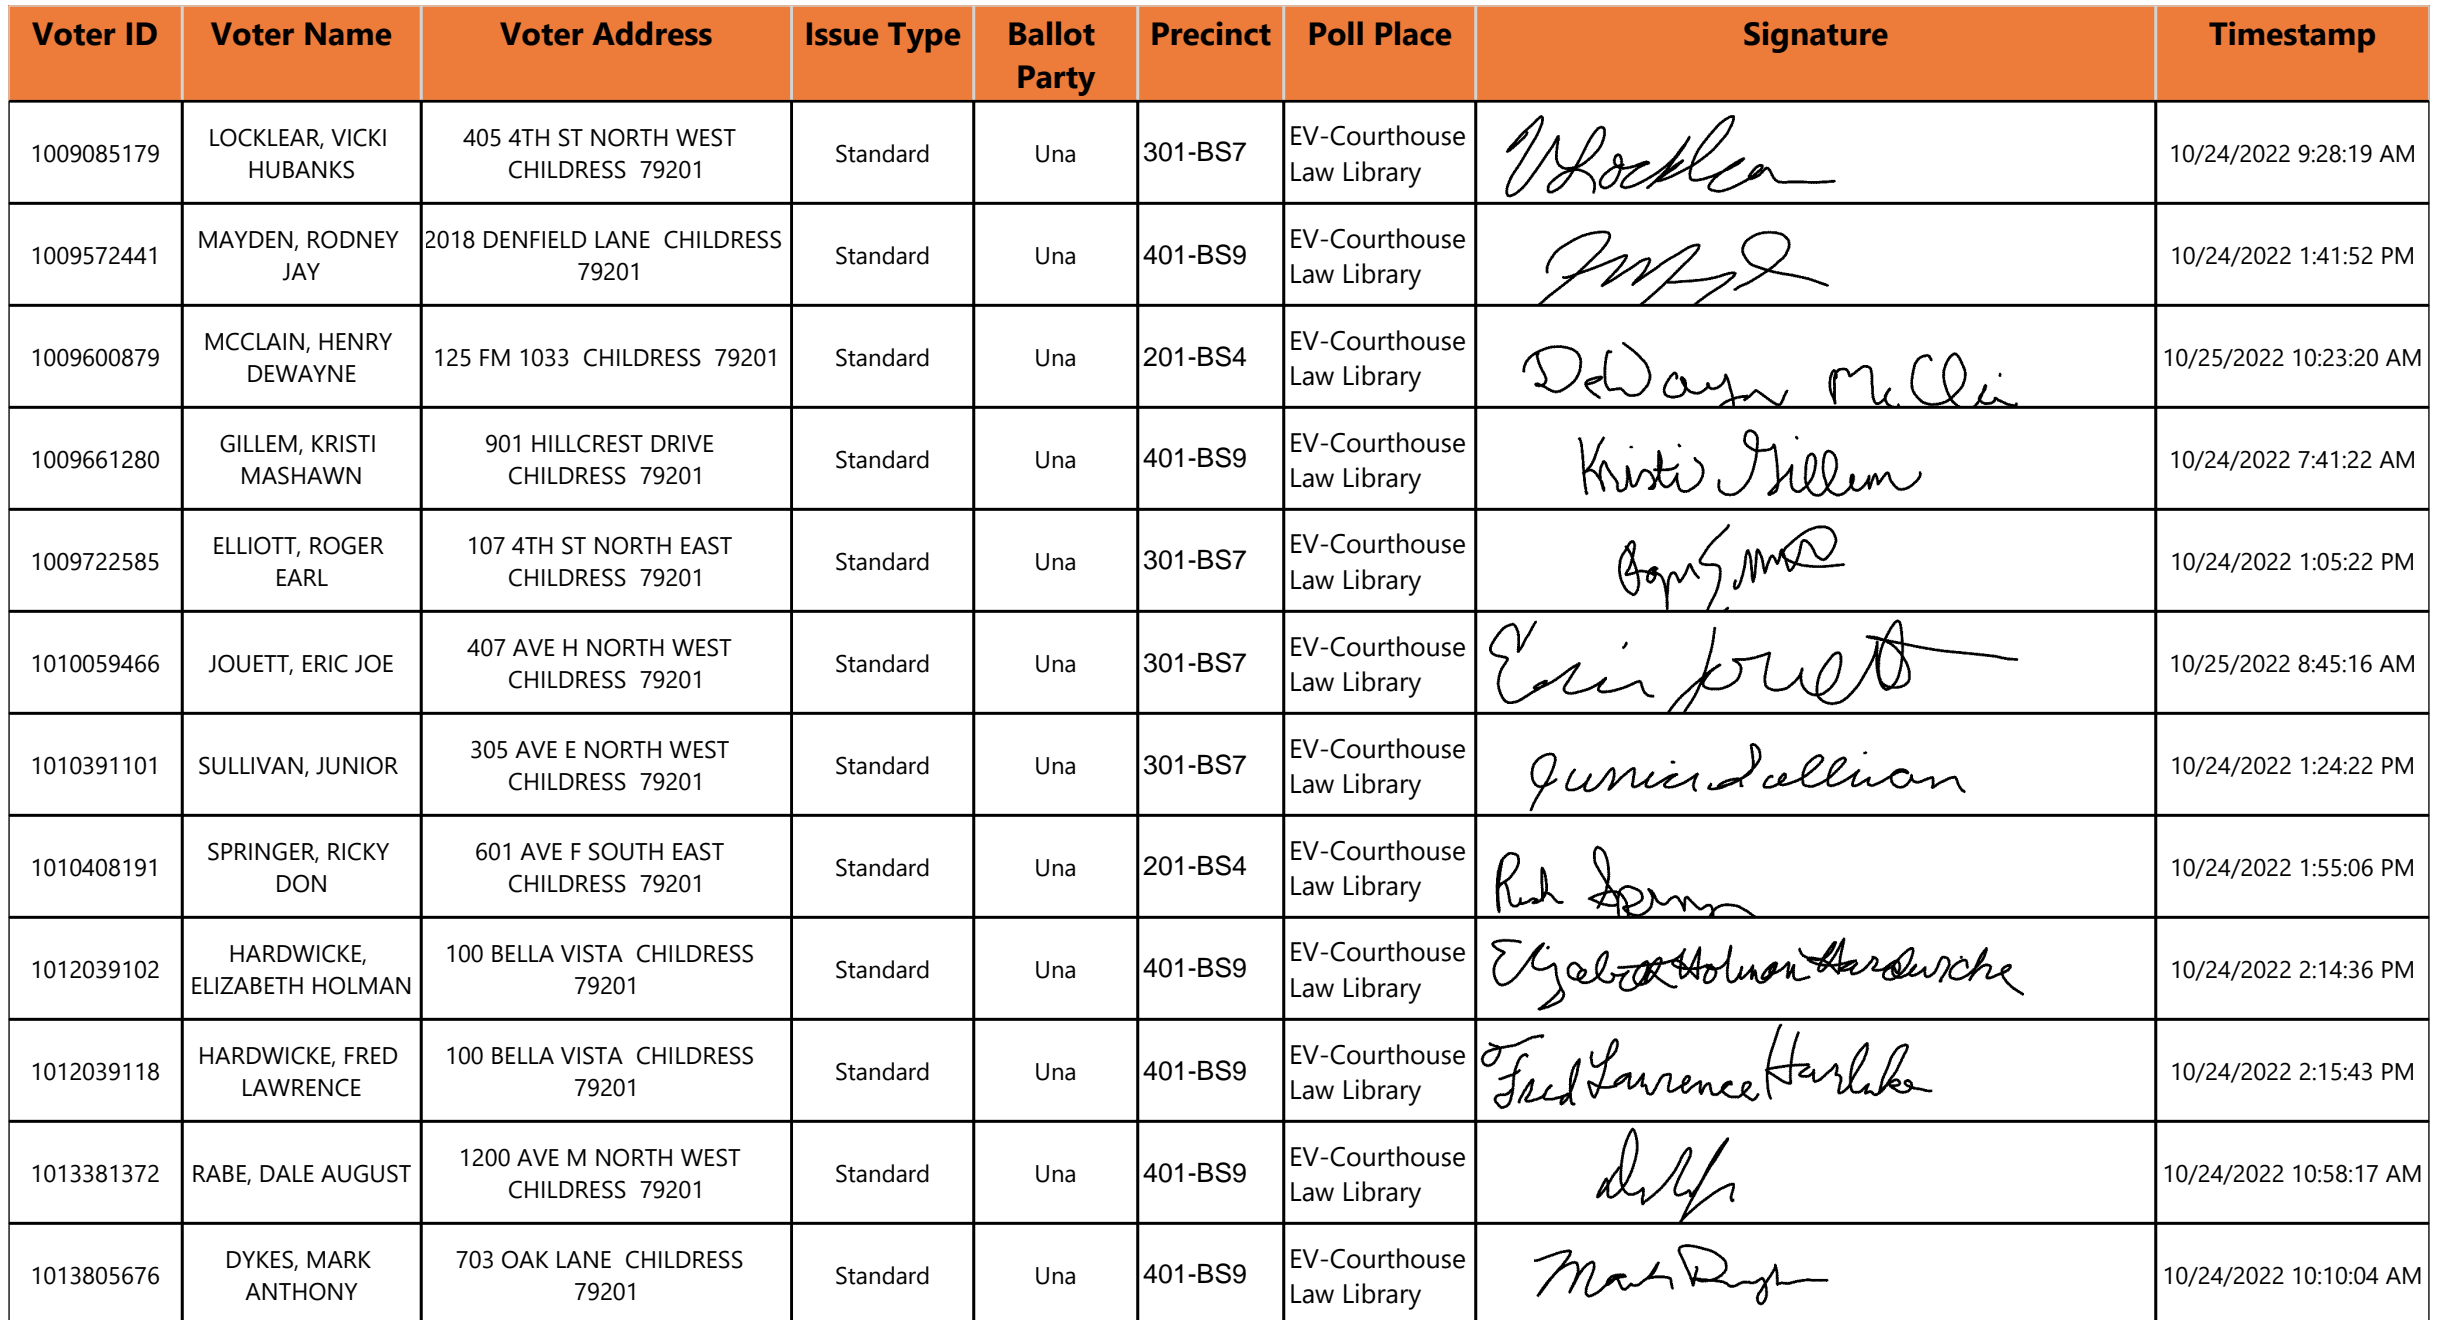 Voter ID Voter Name Voter Address Issue Type Ballot Party Precinct Poll Place Signature Timestamp
1009085179 LOCKLEAR, VICKI HUBANKS 405 4TH ST NORTH WEST CHILDRESS 79201 Standard Una 301-BS7 EV-Courthouse Law Library V Locklear 10/24/2022 9:28:19 AM
1009572441 MAYDEN, RODNEY JAY 2018 DENFIELD LANE CHILDRESS 79201 Standard Una 401-BS9 EV-Courthouse Law Library 10/24/2022 1:41:52 PM
1009600879 MCCLAIN, HENRY DEWAYNE 125 FM 1033 CHILDRESS 79201 Standard Una 201-BS4 EV-Courthouse Law Library DeWayn McCli 10/25/2022 10:23:20 AM
1009661280 GILLEM, KRISTI MASHAWN 901 HILLCREST DRIVE CHILDRESS 79201 Standard Una 401-BS9 EV-Courthouse Law Library Kristi Gillem 10/24/2022 7:41:22 AM
1009722585 ELLIOTT, ROGER EARL 107 4TH ST NORTH EAST CHILDRESS 79201 Standard Una 301-BS7 EV-Courthouse Law Library 10/24/2022 1:05:22 PM
1010059466 JOUETT, ERIC JOE 407 AVE H NORTH WEST CHILDRESS 79201 Standard Una 301-BS7 EV-Courthouse Law Library Eric Jouett 10/25/2022 8:45:16 AM
1010391101 SULLIVAN, JUNIOR 305 AVE E NORTH WEST CHILDRESS 79201 Standard Una 301-BS7 EV-Courthouse Law Library Junior Sullivan 10/24/2022 1:24:22 PM
1010408191 SPRINGER, RICKY DON 601 AVE F SOUTH EAST CHILDRESS 79201 Standard Una 201-BS4 EV-Courthouse Law Library 10/24/2022 1:55:06 PM
1012039102 HARDWICKE, ELIZABETH HOLMAN 100 BELLA VISTA CHILDRESS 79201 Standard Una 401-BS9 EV-Courthouse Law Library Elizabeth Holman Hardwicke 10/24/2022 2:14:36 PM
1012039118 HARDWICKE, FRED LAWRENCE 100 BELLA VISTA CHILDRESS 79201 Standard Una 401-BS9 EV-Courthouse Law Library Fred Lawrence Hardwicke 10/24/2022 2:15:43 PM
1013381372 RABE, DALE AUGUST 1200 AVE M NORTH WEST CHILDRESS 79201 Standard Una 401-BS9 EV-Courthouse Law Library 10/24/2022 10:58:17 AM
1013805676 DYKES, MARK ANTHONY 703 OAK LANE CHILDRESS 79201 Standard Una 401-BS9 EV-Courthouse Law Library Mark 10/24/2022 10:10:04 AM